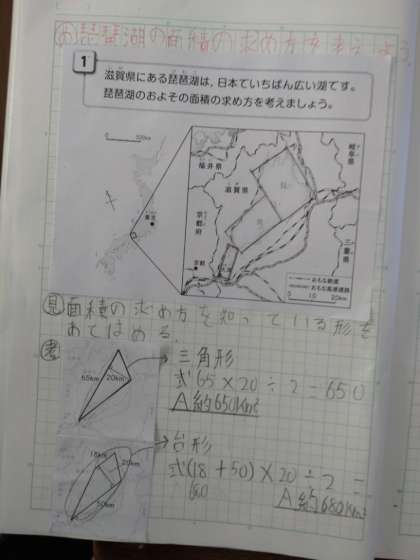 め 琵琶湖の面積の求め方を考えよう。
1
滋賀県にある琵琶湖は、日本でいちばん広い湖です。
琵琶湖のおよその面積の求め方を考えましょう。
福井県
岐阜県
滋賀県
京都府
三重県
京都
おもな鉄道
おもな高速道路
0 10 20km
見 面積の求め方を知っている形を
あてはめる。
考
三角形
65km 20km
式 65×20÷2=650
A 約650km²
台形
18km
20km
50km
式 (18+50)×20÷2=
A 約680km²